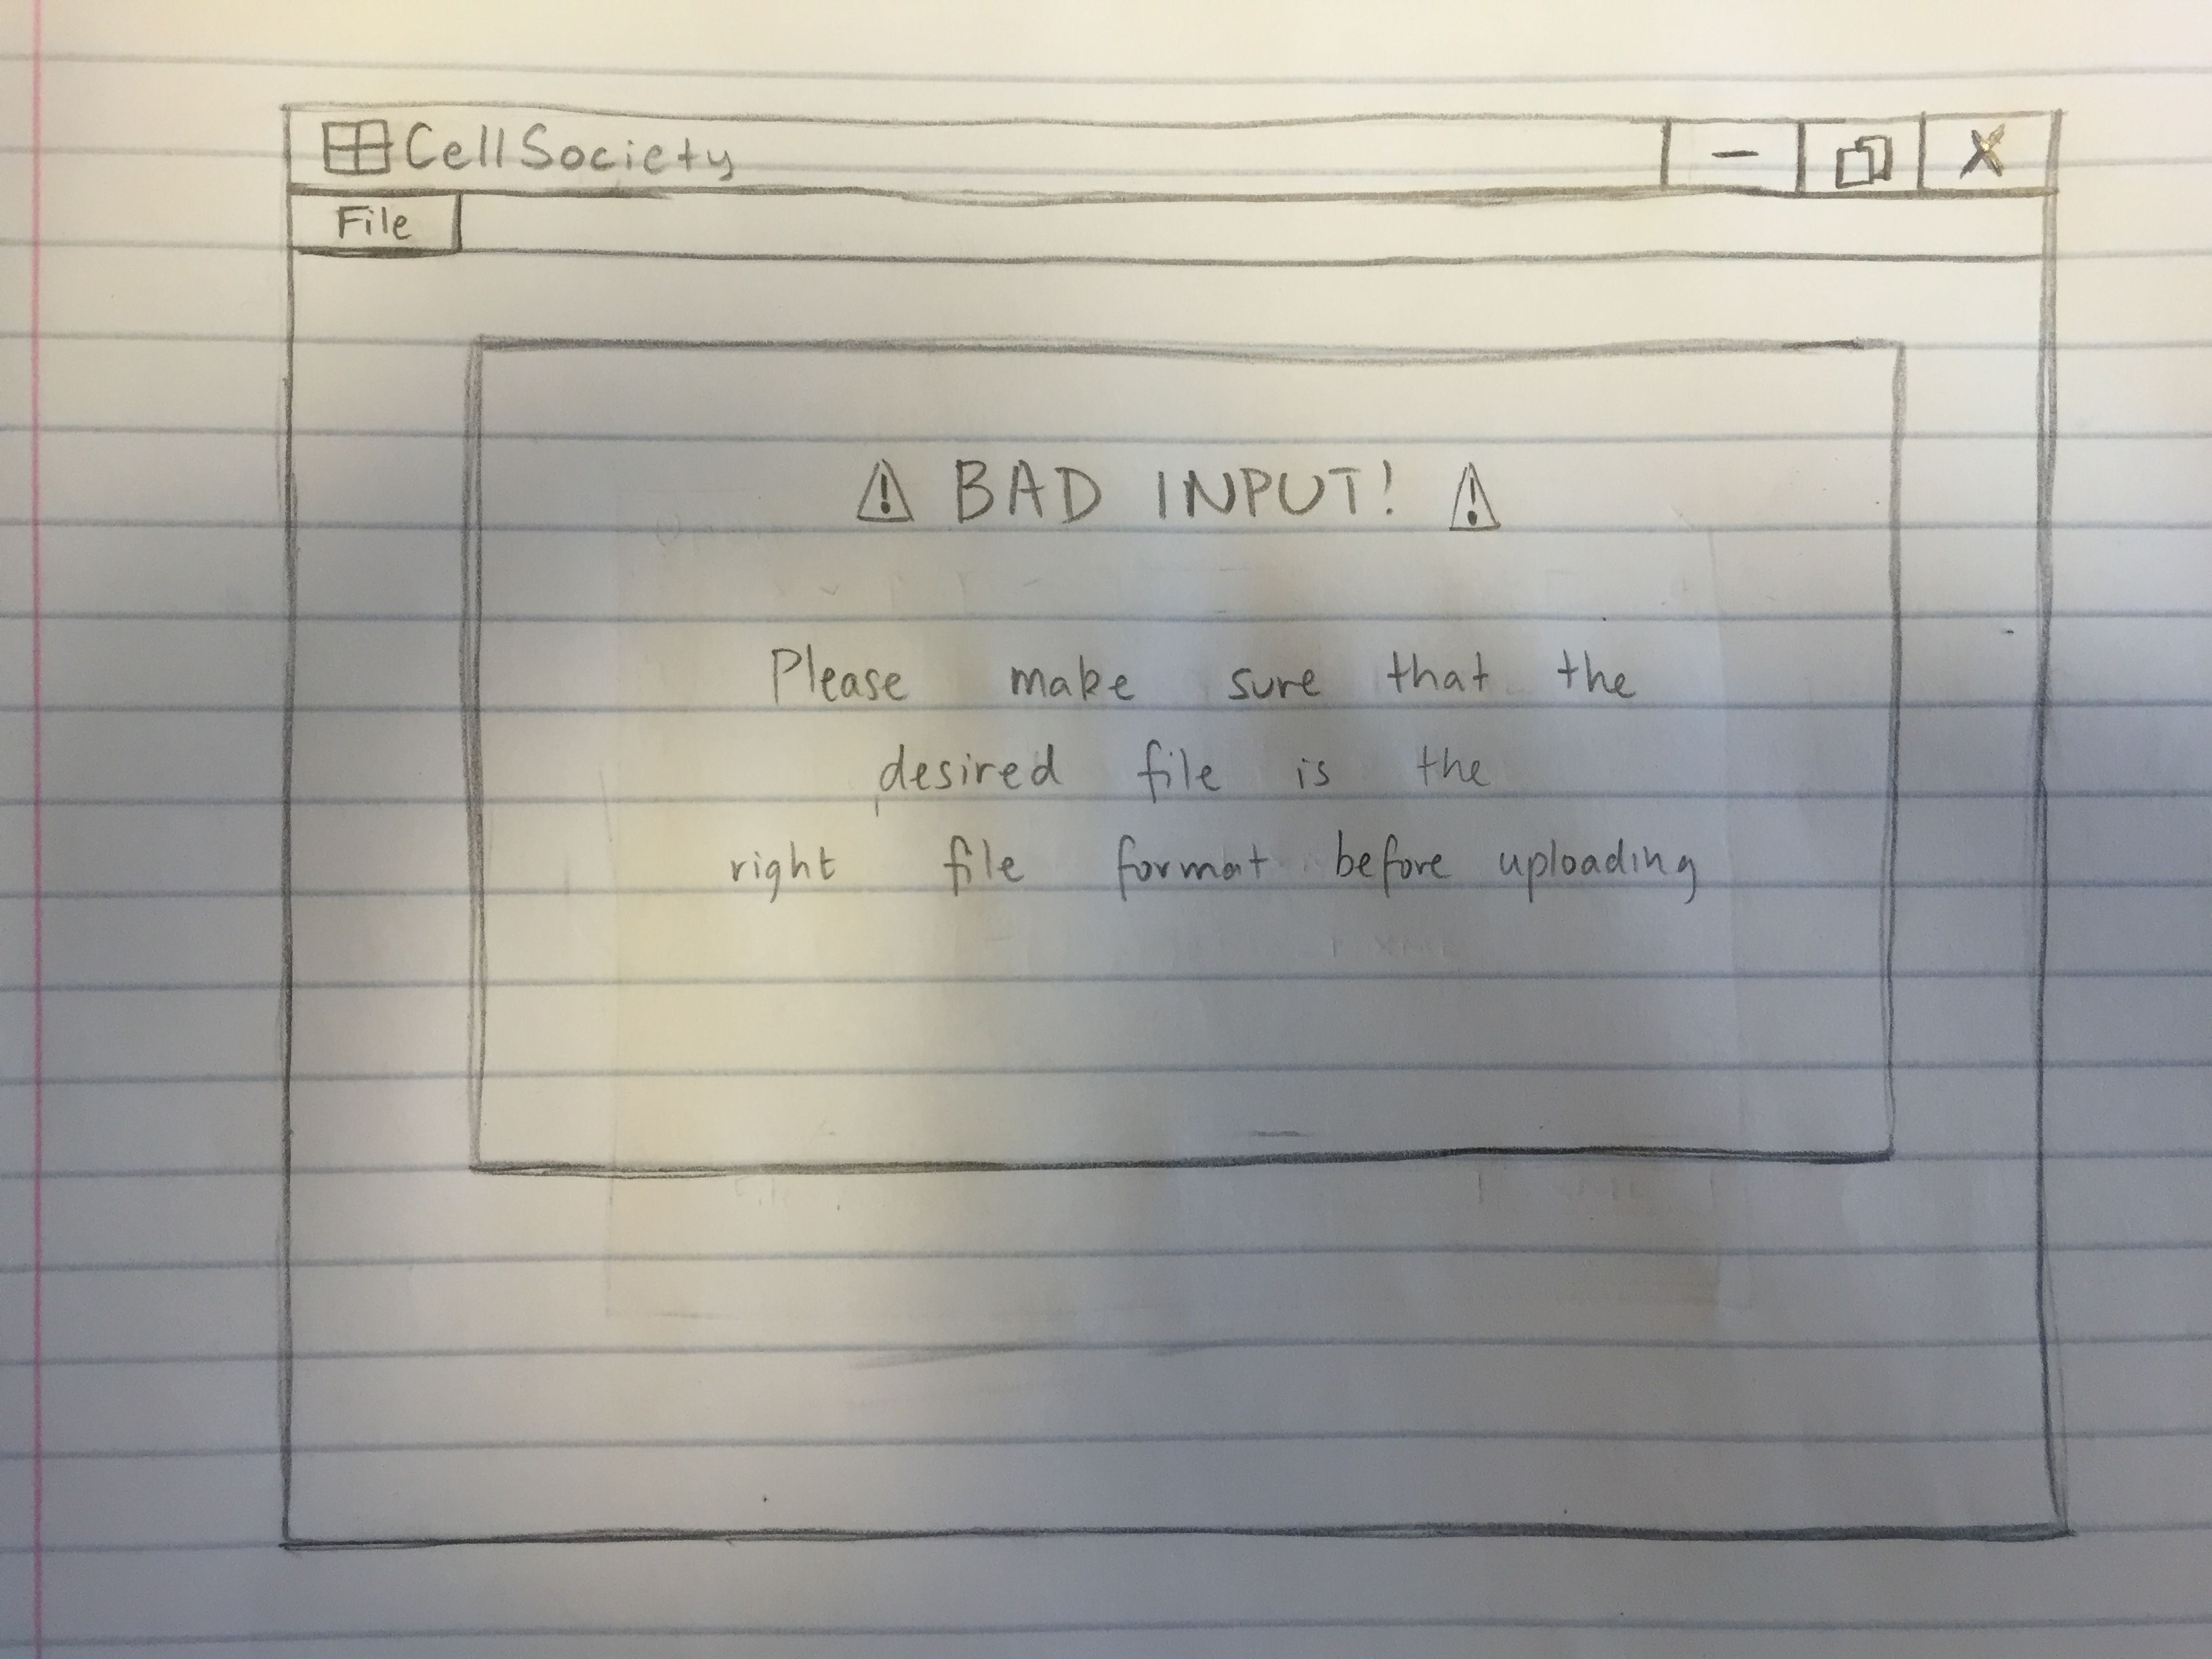 CellSociety
File
BAD INPUT!
Please make sure that the
desired file is the
right file format before uploading